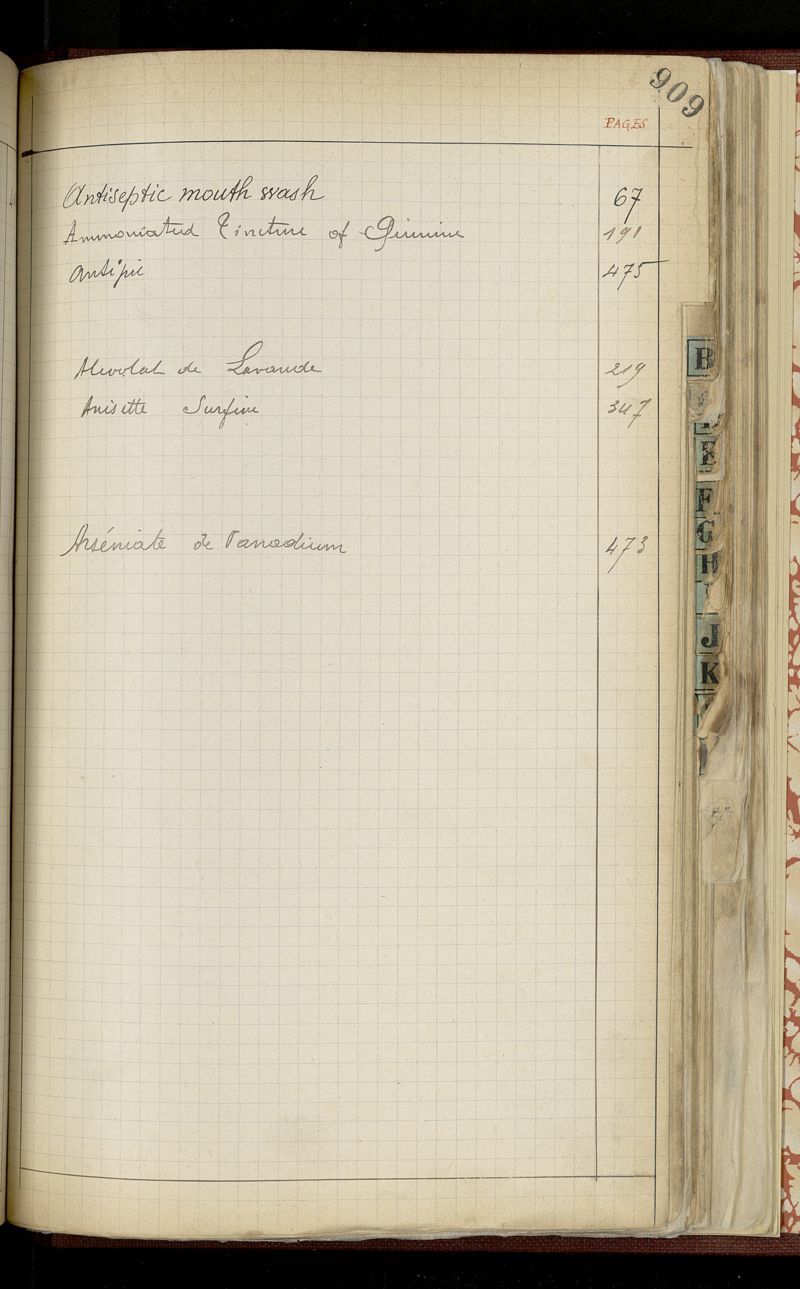 909
PAGES
Antiseptic mouth wash 67
Ammoniated Tincture of Quinine 191
Antipic 475
Alcoolat de Lavande 219
Anisette Surfine 347
Arséniate de Vanadium 473
B
E
F
G
H
J
K